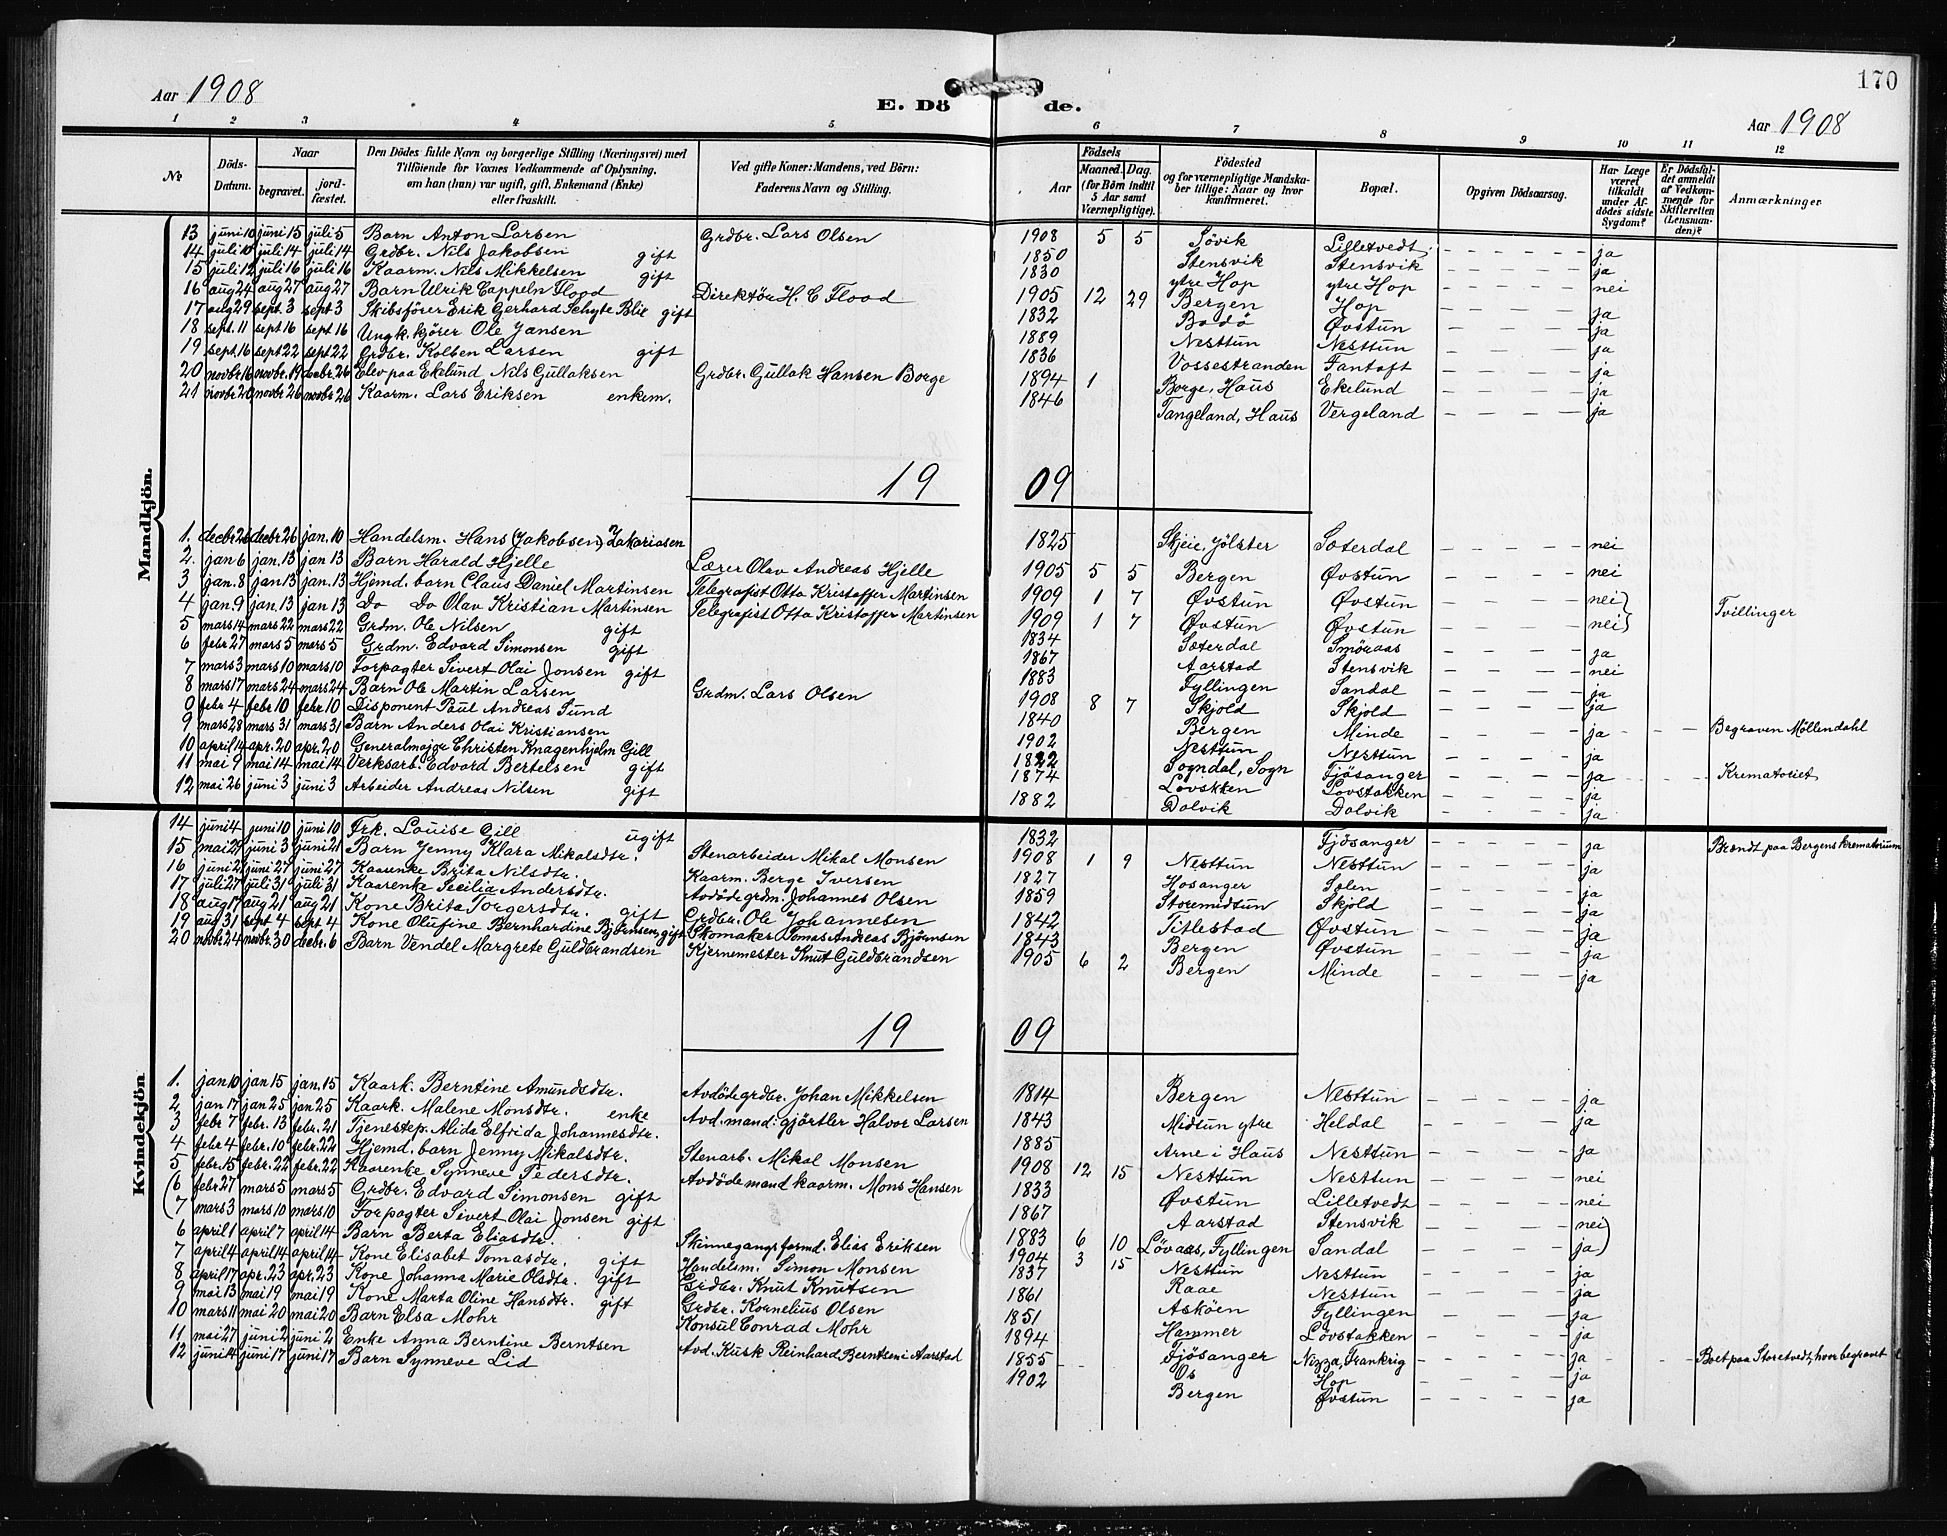 Aar 1908 E. Dö de. Aar 1908 170
1 2 3 4 5 6 7 8 9 10 11 12
№ Döds-Datum. Naar begravet. jord-fæstet. Den Dödes fulde Navn og borgerlige Stilling (Næringsvei) med Tilföiende for Voxnes Vedkommende af Oplysning, om han (hun) var ugift, gift, Enkemand (Enke) eller fraskilt. Ved gifte Koner: Mandens, ved Börn: Faderens Navn og Stilling. Aar Födsels Maaned. Dag. (for Börn indtil 5 Aar samt Værnepligtige). Födested og for værnepligtige Mandskaber tillige: Naar og hvor konfirmeret. Bopæl. Opgiven Dödsaarsag. Har Læge været tilkaldt under Afdödes sidste Sygdom? Er Dödsfaldet anmeldt af Vedkommende for Skifteretten (Lensmanden)? Anmærkninger
Mandkjön.
13 juni 10 juni 15 juli 5 Barn Anton Larsen Grdbr. Lars Olsen 1908 5 5 Søvik Lilletvedt - - - - - ja
14 juli 10 juli 14 juli 14 Grdbr. Nils Jakobsen gift 1850 Stensvik Stensvik - - - - - ja
15 juli 12 juli 16 juli 16 Kaarm. Nils Mikkelsen gift 1830 ytre Hop ytre Hop - - - - - nei
16 aug 24 aug 27 aug 27 Barn Ulrik Cappeln Flood Direktør H. C Flood 1905 12 29 Bergen Hop - - - - - ja
17 aug 29 sept. 3 sept 3 Skibsfører Erik Gerhard Schyte Blie gift 1832 Bodö Øvstun - - - - - ja
18 sept. 11 sept 16 sept. 16 Ungk. kjører Ole Jansen 1889 Nesttun Nesttun - - - - - ja
19 sept. 16 sept 22 sept 22 Grdbr. Kolben Larsen gift 1836 Vossestranden Fantoft - - - - - ja
20 novbr 16 novbr. 19 decbr. 26 Elev paa Ekelund Nils Gullaksen Grdbr. Gullak Hansen Borge 1894 1 Borge, Haus Ekelund - - - - - ja
21 novbr 20 novbr 26 novbr 26 Kaarm. Lars Eriksen enkem. 1846 Tangeland, Haus Vergeland - - - - - ja
19 09
1. decbr 26 decbr 26 jan. 10 Handelsm. Hans (Jakobsen) Zakariasen 1825 Skjeie, Jölster Sæterdal - - - - - nei
2. jan 6 jan. 13 jan 13 Barn Harald Hjelle Lærer Olav Andreas Hjelle 1905 5 5 Bergen Øvstun - - - - - nei
3 jan. 8 jan 13 jan. 13 Hjemd. barn Claus Daniel Martinsen Telegrafist Otto Kristoffer Martinsen 1909 1 7 Øvstun Øvstun - - - - - nei } Tvillinger
4 jan. 9 jan. 13 jan 13 Do Do Olav Kristian Martinsen Telegrafist Otto Kristoffer Martinsen 1909 1 7 Øvstun Øvstun - - - - - nei }
5 mars 14 mars 22 mars 22 Grdm. Ole Nilsen gift 1834 Sæterdal Smöraas - - - - - ja
6 febr 27 mars 5 mars 5 Grdm. Edvard Simonsen gift 1867 Aarstad Stensvik - - - - - nei
7 mars 3 mars 10 mars 10 Forpagter Sivert Olai Jonsen gift 1883 Fyllingen Sandal - - - - - ja
8 mars 17 mars 24 mars 24 Barn Ole Martin Larsen Grdm. Lars Olsen 1908 8 7 Skjold Skjold - - - - - ja
0 febr 4 febr 10 febr. 10 Disponent Paul Andreas Sund 1840 Bergen Minde - - - - - ja - - - Begraven Möllendahl
9 mars 28 mars 31 mars 31 Barn Anders Olai Kristiansen 1902 Nesttun Nesttun - - - - - ja
10 april 14 apr. 20 apr. 20 Generalmajor Christen Knagenhjelm Gill 1822 Sogndal, Sogn Fjösanger - - - - - ja - - - Krematoriet
11 mai 9 mai 14 mai 14 Verksarb. Edvard Bertelsen gift 1874 Løvskken Løvstakken - - - - - ja
12 mai 26 juni 3 juni 3 Arbeider Andreas Nilsen gift 1882 Dolvik Dolvik - - - - - ja
Kvindekjön
14 juni 4 juni 10 juni 10 Frk. Louise Gill ugift 1832 Fjösanger - - - - - ja Brændt paa Bergens krematorium
15 mai 29 juni 3 juni 21 Barn Jenny Klara Mikalsdtr. Stenarbeider Mikal Monsen 1908 1 9 Nesttun Nesttun - - - - - ja
16 juni 2 juni 27 juni 27 Kaarenke Brita Nilsdtr. Kaarm. Berge Iversen 1827 Hosanger Solen - - - - - ja
17 juli 27 juli 31 juli 31 Kaarenke Secilia Andersdtr. Avdöde grdm. Johannes Olsen 1859 Storemidtun Skjold - - - - - ja
18 aug 17 aug 21 aug 21 Kone Brita Torgersdtr. gift Grdbr. Ole Johannesen 1842 Titlestad Øvstun - - - - - ja
19 aug 31 sept. 4 sept 4 Kone Olufine Bernhardine Bjørnsen, gift Skomaker Tomas Andreas Bjørnsen 1843 Bergen Øvstun - - - - - ja
20 novbr 24 novbr. 30 decbr. 6 Barn Vendel Margrete Guldbrandsen Kjernemester Knut Guldbrandsen 1905 6 2 Bergen Minde - - - - - ja
19 09
1. jan 10 jan 15 jan. 15 Kaark. Berntine Amundsdtr. Avdöde grdbr. Johan Mikkelsen 1814 Bergen Nesttun - - - - - ja
2 jan 17 jan 25 jan 25 Kaark. Malene Monsdtr. enke Avd. mand: gjørtler Halvor Larsen 1843 Midtun ytre Heldal - - - - - ja
3 febr 7 febr. 13 febr. 21 Tjenestep. Alida Elfrida Johannesdtr. 1885 Arne i Haus Nesttun - - - - - ja
4 febr 4 febr. 10 febr. 22 Hjemd. barn Jenny Mikalsdtr. Stenarb. Mikal Monsen 1908 12 15 Nesttun Nesttun - - - - - nei
5 febr. 15 febr. 22 febr. 22 Kaarenke Synneve Pedersdtr. Avdöde mand kaarm. Mons Hansen 1833 Øvstun Lilletvedt - - - - - nei
(6 febr 27 mars 5 mars 5 Grdbr. Edvard Simonsen gift 1867 Aarstad Stensvik - - - - - nei)
(7 mars 3 mars 10 mars 10 Forpagter Sivert Olai Jonsen gift 1883 Løvaas, Fyllingen Sandal - - - - - ja)
6 april 1 april 7 april 14 Barn Berta Eliasdtr. Skinnegangsformd. Elias Eriksen 1904 6 10 3 15 Nesttun Nesttun - - - - - ja
7 april 4 april 14 april 14 Kone Elisabet Tomasdtr. gift Handelsm. Simon Monsen 1837 Raae Nesttun - - - - - ja
8 april 17 apr. 23 apr. 23 Kone Johanna Marie Olsdtr. gift Grdbr. Knut Knutsen 1861 Asköen Fyllingen - - - - - ja
9 mai 13 mai 19 mai 19 Kone Marta Oline Hansdtr. gift Grdbr. Kornelius Olsen 1851 Hammer Løvstakken - - - - - ja
10 mars 11 mai 20 mai 20 Barn Elsa Mohr Konsul Conrad Mohr 1894 Fjösanger Nizza, Frankrig - - - - - ja - - - Boet paa Storetvedt, hvor begravet
11 mai 27 juni 2 juni 2 Enke Anna Berntine Berntsen Avd. Kusk Reinhard Berntsen i Aarstad 1855 Os Hop - - - - - ja
12 juni 14 juni 17 juni 17 Barn Synneve Lid 1902 Bergen Øvstun - - - - - ja